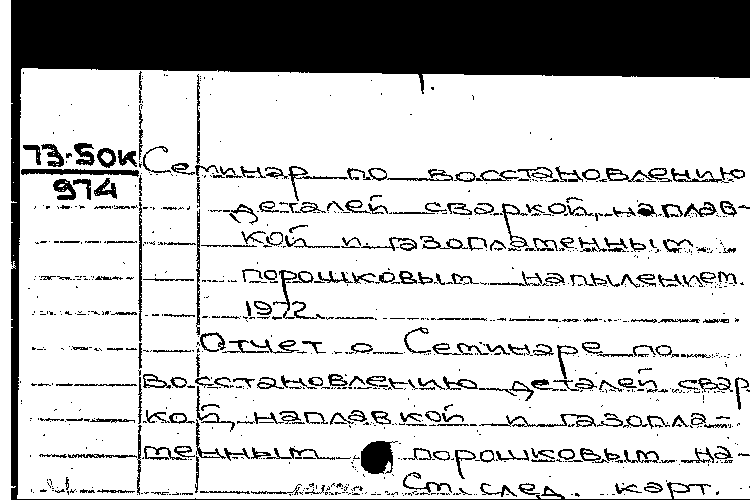 1.
73-50К Семинар по восстановлению
974 деталей сваркой, наплав-
кой и газопламенным
порошковым напылением.
1972.
Отчет о Семинаре по
восстановлению деталей свар
кой, наплавкой и газопла-
менным порошковым на-
См. след. карт.